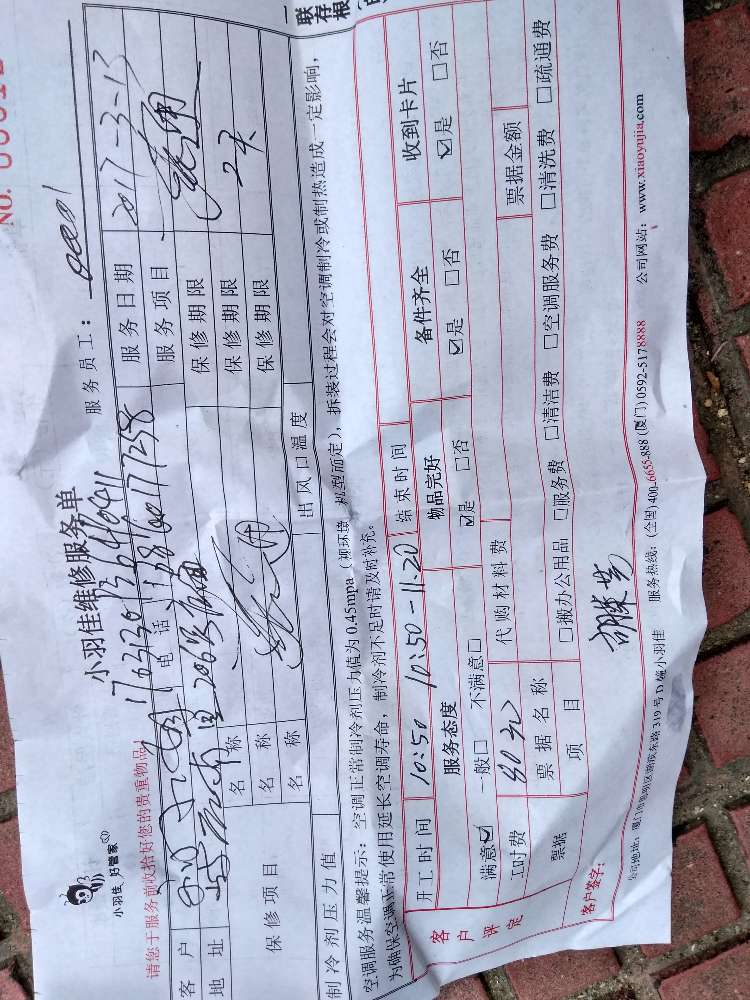 一联存根
NO.
小羽佳 好管家
小羽佳维修服务单
请您于服务前收拾好您的贵重物品！
服务员工：0001
客户 服务日期 2017-3-13
地址 电话 服务项目
保修项目 名称 保修期限 2天
名称 保修期限
名称 保修期限
制冷剂压力值 出风口温度
空调服务温馨提示：空调正常制冷剂压力值为0.45mpa（视环境、机型而定），拆装过程会对空调制冷或制热造成一定影响，
为确保空调正常使用延长空调寿命，制冷剂不足时请及时补充。
客户评定 开工时间 10:50 10:50-11:20 结束时间
服务态度 物品完好 备件齐全 收到卡片
满意☑ 一般□ 不满意□ ☑是 □否 ☑是 □否 ☑是 □否
工时费 80元 代购材料费
票据 票据名称 票据金额
项目 □搬办公用品 □服务费 □清洁费 □空调服务费 □清洗费 □疏通费
客户签字：
公司地址：厦门市思明区 319号D 小羽佳 服务热线：(全国)400-6655-888 (厦门)0592-5178888 公司网站：www.xiaoyujia.com